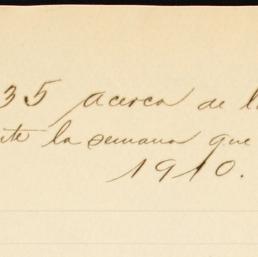 35 acerca de l
te la semana que
1910.